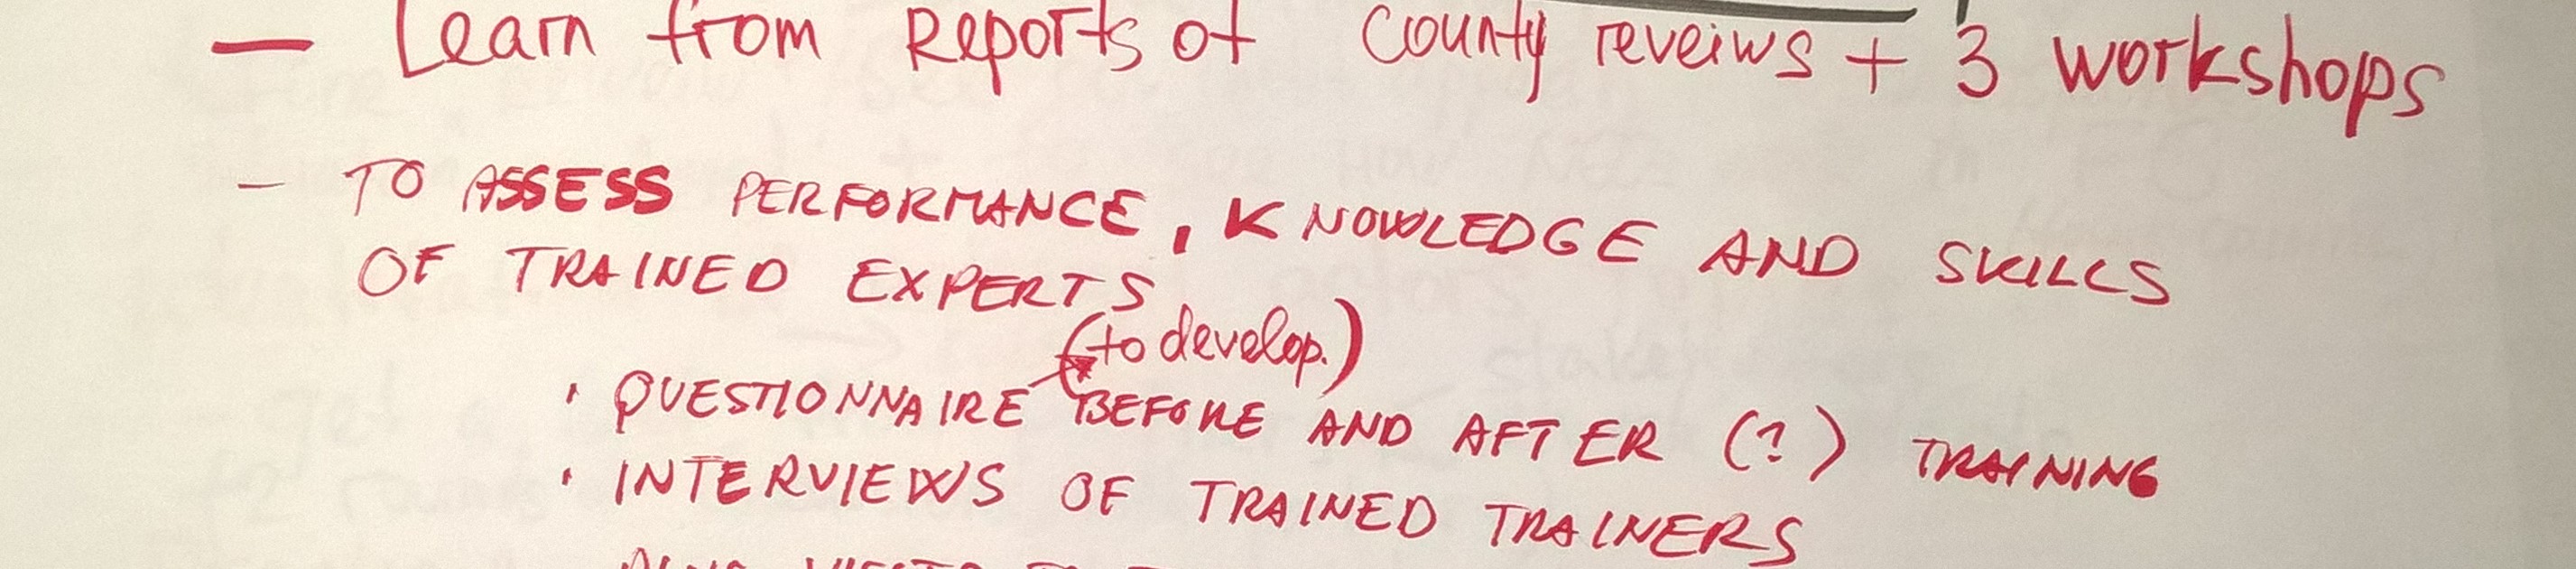 - Learn from Reports of County reveiws + 3 workshops
- TO ASSESS PERFORMANCE, KNOWLEDGE AND SKILLS
OF TRAINED EXPERTS
(to develop.)
• QUESTIONNAIRE BEFORE AND AFTER (?) TRAINING
• INTERVIEWS OF TRAINED TRAINERS